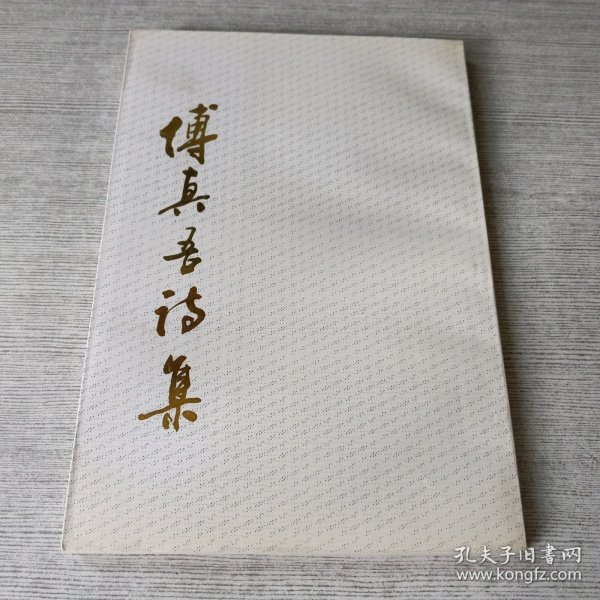 傅真吾诗集
孔夫子旧書网
www.kongfz.com